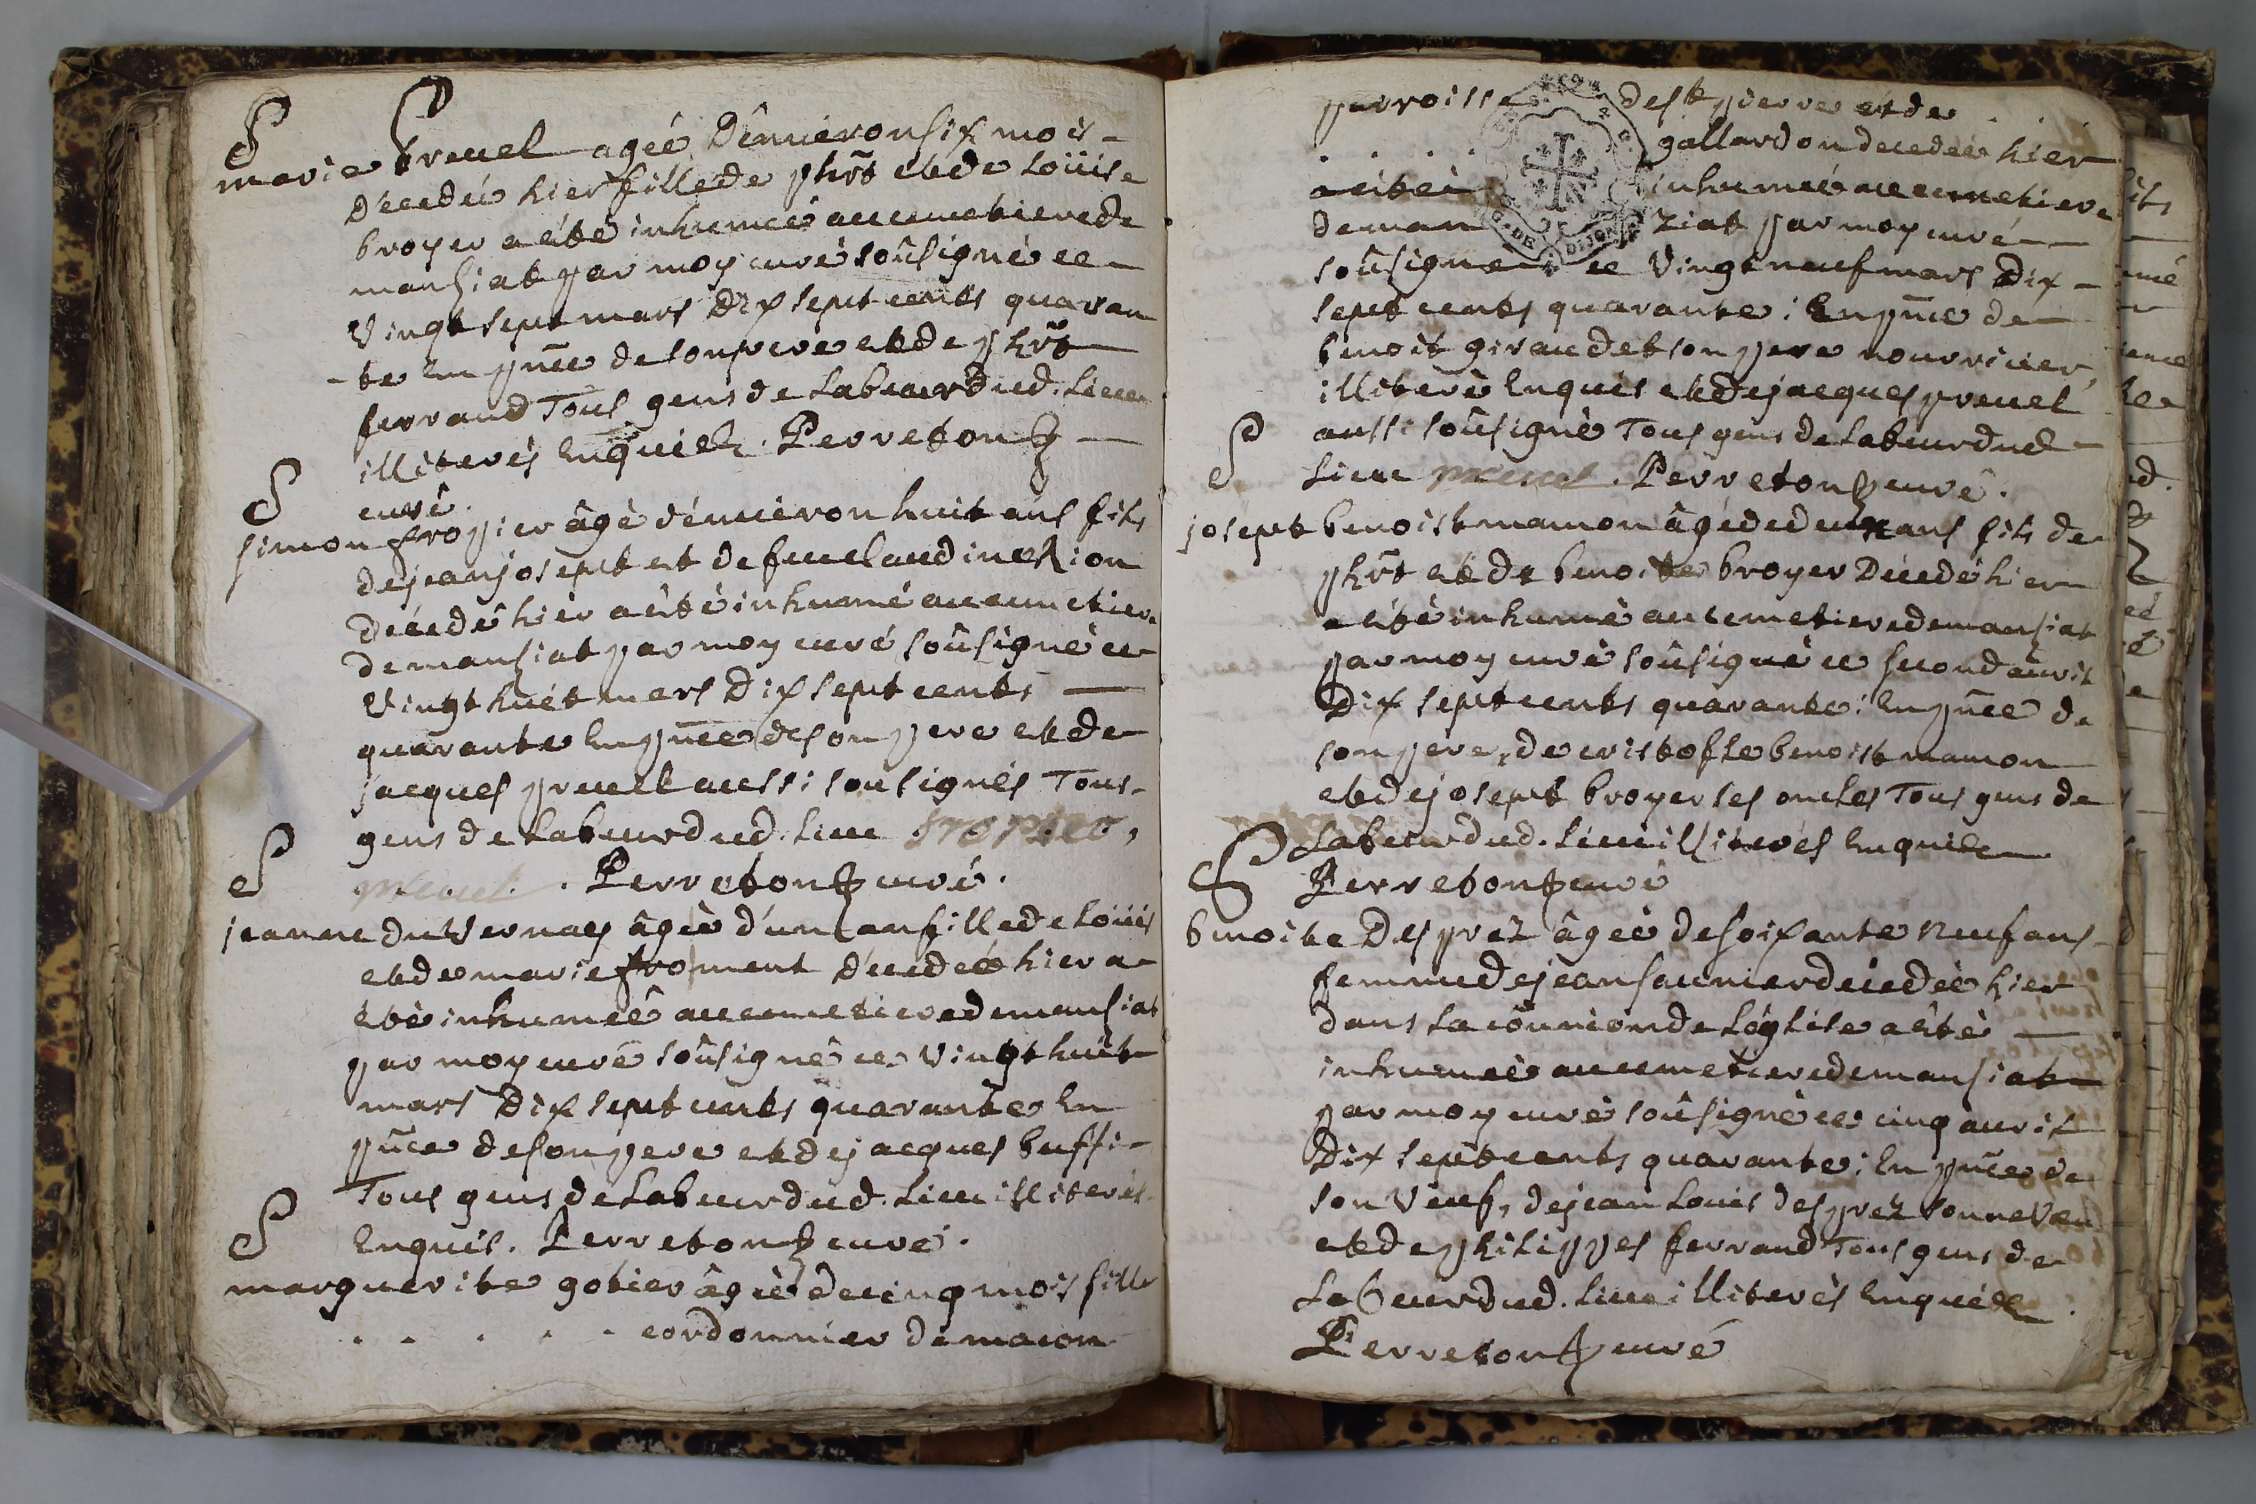 S
marie preuel agée d'enuiron six mois
décedée hier fille de phrt et de Loüise
broyer a été inhumée au cemetiere de
manziat par moy curé soûsigné ce
Vingt sept mars Dix sept cents quaran
te En pnce de son pere et de phrt
ferrand Tous gens de Labeur dud. Lieu
illiterés Enquis. Perreton
curé.
S
simon fropier âgé d'énuiron huit ans fils
de jean josept et de feue claudine
Décedé hier a été inhumé au cemetiere
de manziat par moy curé soûsigné ce
Vingt huit mars Dix sept cents
quarante En pnce de son pere et de
jacques preuel aussi sousignés Tous
gens de Labeur dud. Lieu fropier,
preuel. Perreton curé.
S
jeanne du Vernay âgée d'un an fille de Loüis
et de marie froment décedée hier a
été inhumée au cemetiere de mansiat
par moy curé soûsigné ce Vingt huit
mars Dix sept cents quarante En
pnce de son pere et de jacques buffi
Tous gens de Labeur dud. Lieu illiterés
Enquis. Perreton curé.
S
marguerite gotier âgée de cinq mois fille
. . . . . cordonnier de macon
parroisse de st pierre et de . .
. . . . gallardon decedée hier
a été inhumée au cemetiere
de man ziat par moy curé
soûsigné ce Vingt neuf mars Dix
sept cents quarante: En pnce de
benoit giraudet son pere nourricier,
illiteré Enquis et de jacques preuel
aussi soûsigné Tous gens de Labeur dud
Lieu preuel. Perreton curé.
S
josept benoist mamon âgé de deux ans fils de
phrt et de benoite broyer Décedé hier
a été inhumé au cemetiere de mansiat
par moy curé soûsigné ce second auril
Dix sept cents quarante: En pnce de
son pere, de cristofle benoist mamon
et de josept broyer ses oncles Tous gens de
Labeur dud. Lieu illiterés Enquis
Perreton curé
S
benoite Desprez âgée de soixante neuf ans
femme de jean saunier décedée hier
dans La cõunion de L'église a été
inhumée au cemetiere de mansiat
par moy curé soûsigné ce cinq auril
Dix sept cents quarante: En pnce de
son Veuf, de jean Louis desprez son neveu
et de philippes ferrand Tous gens de
Labeur dud. Lieu illiterés Enquis
Perreton curé
DE DIJON